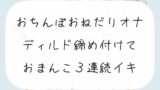 おちんぽおねだりオナ
ディルド締め付けて
おまんこ3連続イキ